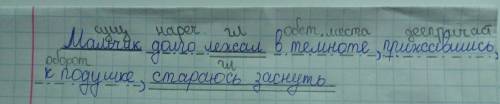 сущ нареч гл обст. места деепричаст
Мальчик долго лежал в темноте, прижавшись,
оборот гл
к подушке, стараюсь заснуть